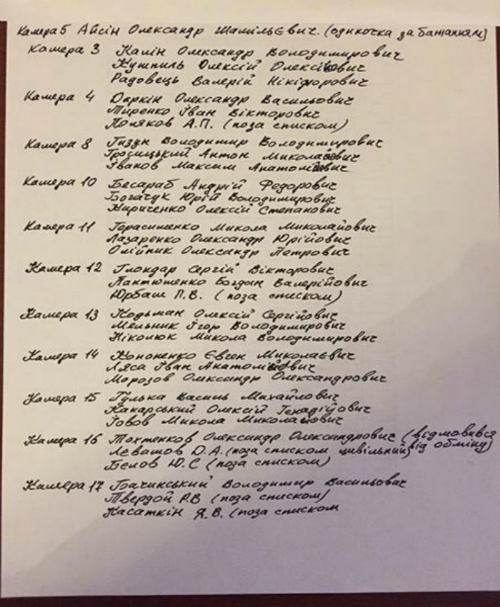 Камера 5 Айсін Олександр Шамільєвич. (одиночка за бажанням)
Камера 3 Калін Олександр Володимирович
Кушпиль Олексій Олексійович
Радовець Валерій Нікіфорович
Камера 4 Деркін Олександр Васильович
Тиренко Іван Вікторович
Поляков А.П. (поза списком)
Камера 8 Гизун Володимир Володимирович
Гросицький Антон Миколайович
Іваков Максим Анатолійович
Камера 10 Бесараб Андрій Федорович
Богачук Юрій Володимирович
Кириченко Олексій Степанович
Камера 11 Герасименко Микола Миколайович
Лазаренко Олександр Юрійович
Олійник Олександр Петрович
Камера 12 Глондар Сергій Вікторович
Пантюшенко Богдан Валерійович
Юрбаш П.В. (поза списком)
Камера 13 Кодьман Олексій Сергійович
Мельник Ігор Володимирович
Ніколюк Микола Володимирович
Камера 14 Кононенко Євген Миколаєвич
Ляса Іван Анатолійович
Морозов Олександр Олександрович
Камера 15 Гулька Василь Михайлович
Канарський Олексій Генадійович
Говов Микола Миколайович
Камера 16 Тохтенков Олександр Олександрович (відмовився
Левашов О.А. (поза списком цивільний від обміну)
Бєлов Ю.С (поза списком)
Камера 17 Бачинський Володимир Васильович
Твердой Р.В (поза списком)
Касаткін Я.В. (поза списком